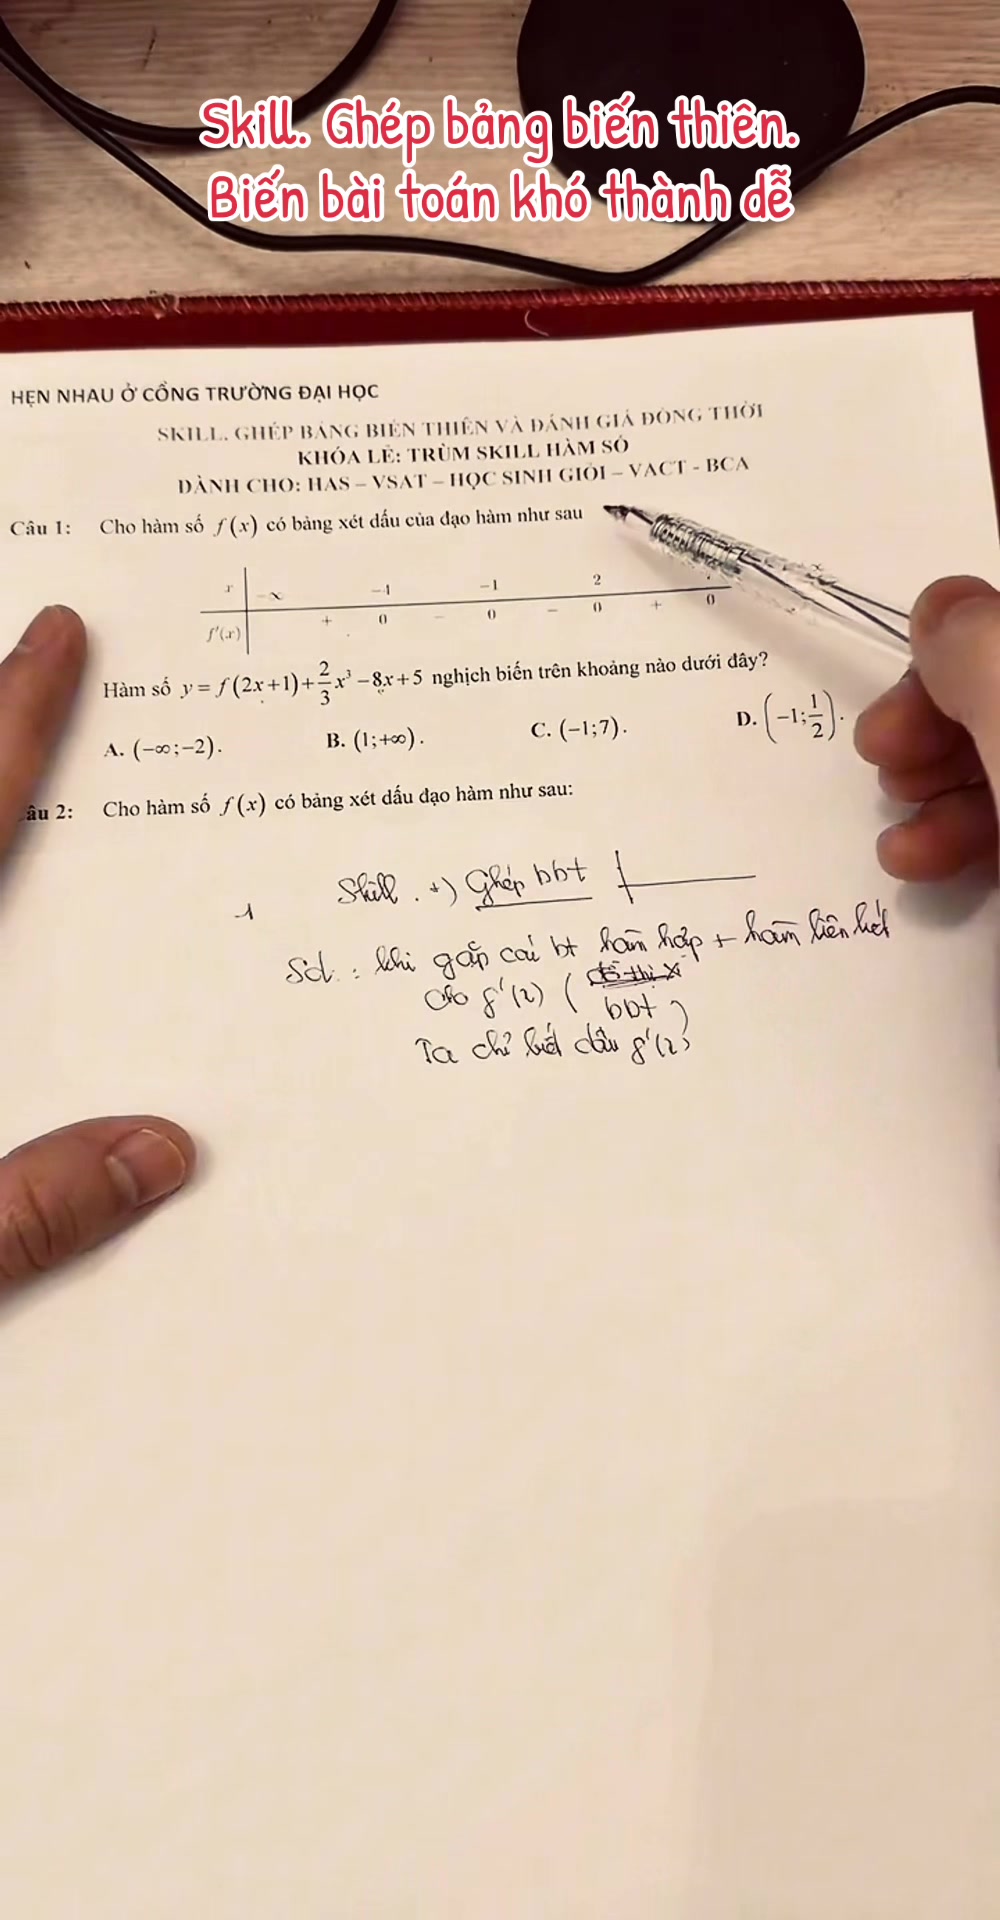 Skill. Ghép bảng biến thiên.
Biến bài toán khó thành dễ
HẸN NHAU Ở CỔNG TRƯỜNG ĐẠI HỌC
SKILL. GHÉP BẢNG BIẾN THIÊN VÀ ĐÁNH GIÁ ĐỒNG THỜI
KHÓA LẺ: TRÙM SKILL HÀM SỐ
DÀNH CHO: HAS – VSAT – HỌC SINH GIỎI – VACT - BCA
Câu 1: Cho hàm số f(x) có bảng xét dấu của đạo hàm như sau
x -∞ -4 -1 2
f'(x) + 0 - 0 - 0 + 0
Hàm số y = f(2x+1) + 2/3 x³ - 8x + 5 nghịch biến trên khoảng nào dưới đây?
A. (-∞;-2). B. (1;+∞). C. (-1;7). D. (-1;1/2).
âu 2: Cho hàm số f(x) có bảng xét dấu đạo hàm như sau:
Skill. +) Ghép bbt
Sd: khi gặp cái bt hàm hợp + hàm liên kết
cho f'(x) (
bbt)
Ta chỉ biết dấu f'(x)